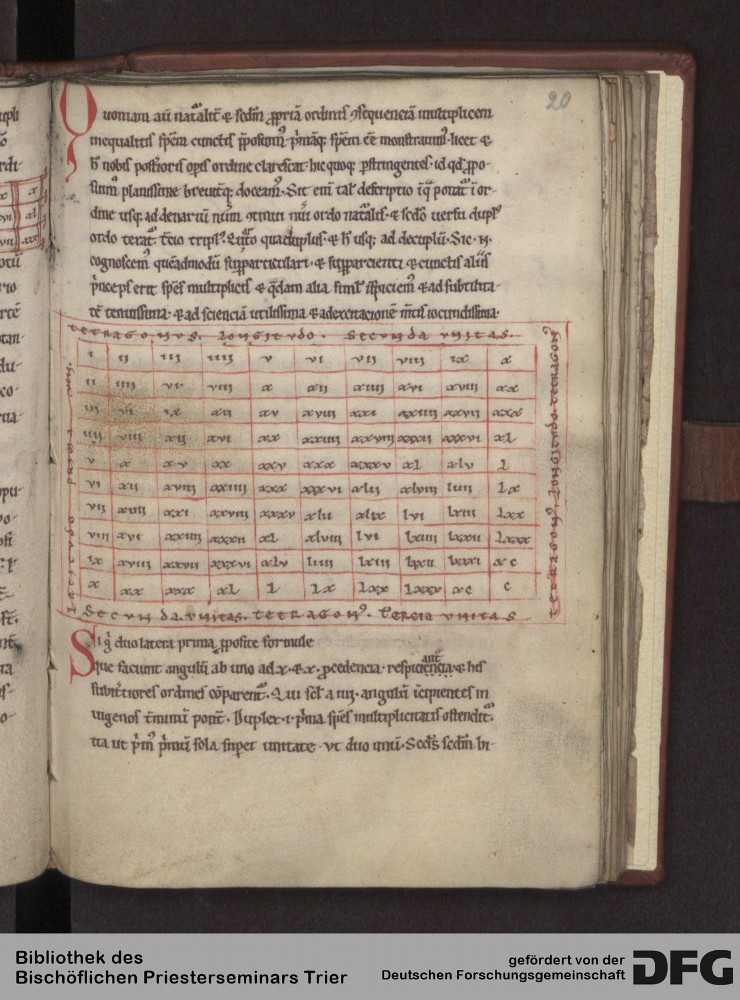 20
Quoniam aū nat͛alit͛ & sedm̄ ꝓpriā ordinis ꝯsequenciā multiplicem
inequalitis spēm cunctis p̄posuim᷒ p̓māq; spēm eē monstrauim᷒. licet &
h̓ nobis posterioris opis ordine clarescat. hic quoq; pstringentes. id qd ꝓpo-
suim᷒ planissime breuit͛q; doceam᷒. Sit eni tal᷒ descriptio
dine usq; ad denariū nūm ꝯtinui nūi ordo nat͛alis. & sc̄do uersu dupl᷒
ordo terat͛. t͛cio tripl᷒. q͛rto quadruplus. & h̓ usq; ad decuplū. Sic .n.
cognoscem᷒ quēadmodū suꝑparticulari. & suꝑparcienti & cunctis aliis
p̓nceps erit spēs multiplicis & q̄dam alia simul īspiciem᷒ & ad subtilita-
tē tenuissima. & ad scienciā utilissima & ad exercitacionē m̄tis iocundissima.
TETRAGONVS. LONGITVDO. SECVNDA VNITAS.
i ii iii iiii v vi vii viii ix x
ii iiii vi viii x xii xiiii xvi xviii xx
iii vi ix xii xv xviii xxi xxiiii xxvii xxx
iiii viii xii xvi xx xxiiii xxviii xxxii xxxvi xl
v x xv xx xxv xxx xxxv xl xlv l
vi xii xviii xxiiii xxx xxxvi xlii xlviii liiii lx
vii xiiii xxi xxviii xxxv xlii xlix lvi lxiii lxx
viii xvi xxiiii xxxii xl xlviii lvi lxiiii lxxii lxxx
ix xviii xxvii xxxvi xlv liiii lxiii lxxii lxxxi xc
x xx xxx xl l lx lxx lxxx xc c
SECVNDA. VNITAS. TETRAGON᷒. TERCIA VNITAS
TETRAGON᷒. LONGITVDO. TETRAGON᷒
Si g̓ duo latera prima ꝓposite formule
que faciunt angulū ab uno ad .x. & .x. ꝓcedencia. respiciant & his
subt͛iores ordines cōparent͛. Qui scl̄. a iiii. angulū īcipientes in
uigenos t͛minū ponūt. Duplex .i. p̓ma spēs multiplicitatis ostendit͛.
ita ut p̓m᷒ p̓mū sola supet unitate. ut duo unū. Scd̄s sedm̄ bi-
Bibliothek des
Bischöflichen Priesterseminars Trier
gefördert von der
Deutschen Forschungsgemeinschaft
DFG